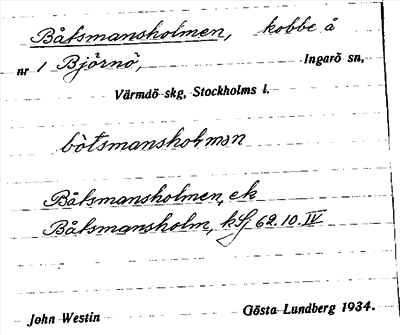 Båtsmansholmen, kobbe å
nr 1 Björnö, Ingarö sn,
Värmdö skg, Stockholms l.
bòtsmanshol·mən
Båtsmansholmen, ek
Båtsmansholm, 62.10.IV
John Westin Gösta Lundberg 1934.